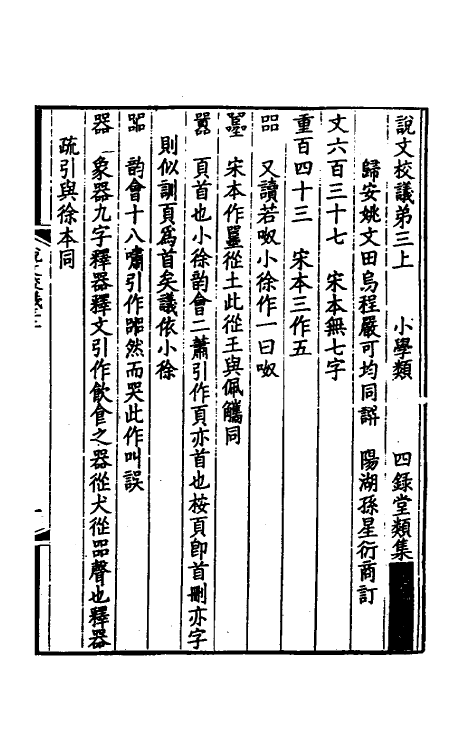 說文校議弟三上　小學類　四錄堂類集
歸安姚文田烏程嚴可均同譔　陽湖孫星衍商訂
文六百三十七　宋本無七字
重百四十三　宋本三作五
㗊　又讀若呶小徐作一曰呶
嚚　宋本作𡅽從土此從王與佩觿同
囂　頁首也小徐韵會二蕭引作頁亦首也桉頁卽首刪亦字
則似訓頁爲首矣議依小徐
嘂　韵會十八嘯引作嘂然而哭此作叫誤
器　象器九字釋器釋文引作飲食之器從犬從㗊聲也釋器
疏引與徐本同